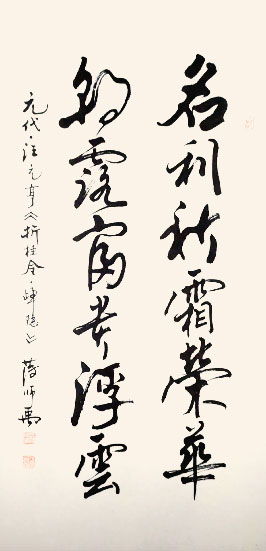 名利秋霜榮華
朝露富貴浮雲
元代·汪元亨《折桂令·歸隱》